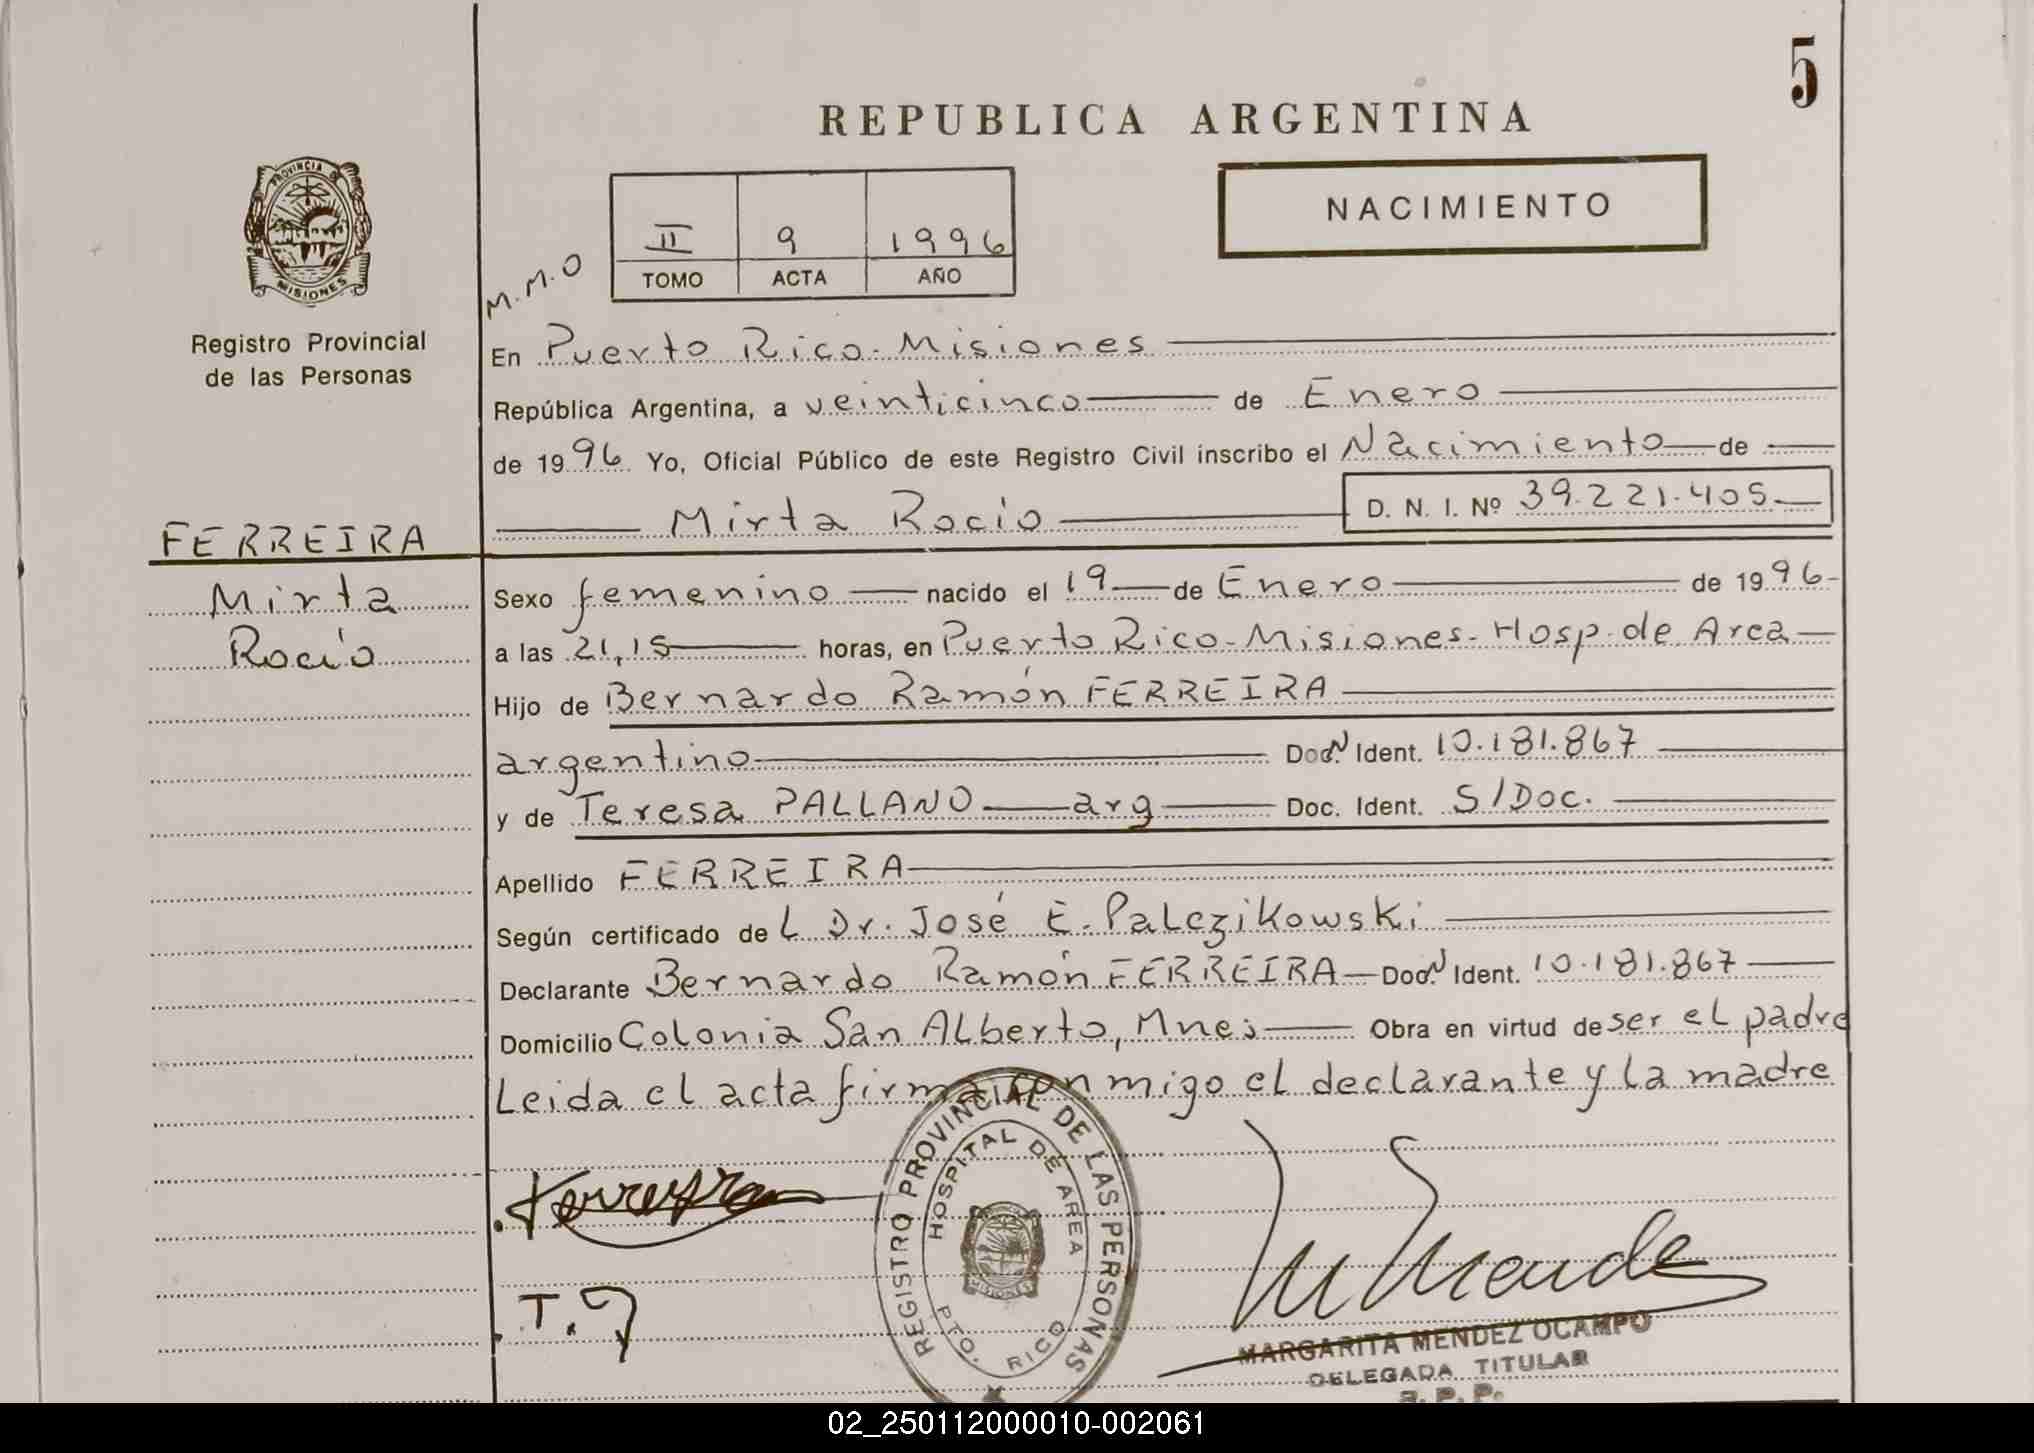 5
REPUBLICA ARGENTINA
PROVINCIA DE
MISIONES
Registro Provincial
de las Personas
M.M.O
II 9 1996
TOMO ACTA AÑO
NACIMIENTO
En Puerto Rico-Misiones
República Argentina, a veinticinco de Enero
de 1996 Yo, Oficial Público de este Registro Civil inscribo el Nacimiento de
Mirta Rocío D. N. I. Nº 39.221.405
FERREIRA
Mirta
Rocío
Sexo femenino nacido el 19 de Enero de 1996
a las 21,15 horas, en Puerto Rico-Misiones-Hosp. de Area
Hijo de Bernardo Ramón FERREIRA
argentino Doc. N Ident. 10.181.867
y de Teresa PALLANO arg Doc. Ident. S/Doc.
Apellido FERREIRA
Según certificado de L Dr. José E. Palczikowski
Declarante Bernardo Ramón FERREIRA Doc. N Ident. 10.181.867
Domicilio Colonia San Alberto, Mnes Obra en virtud de ser el padre
Leida el acta firma con migo el declarante y la madre
Ferreyra
T. P
REGISTRO PROVINCIAL DE LAS PERSONAS
HOSPITAL DE AREA
PTO. RICO
MISIONES
M Mende
MARGARITA MENDEZ OCAMPO
DELEGADA TITULAR
R. P. P.
02_250112000010-002061